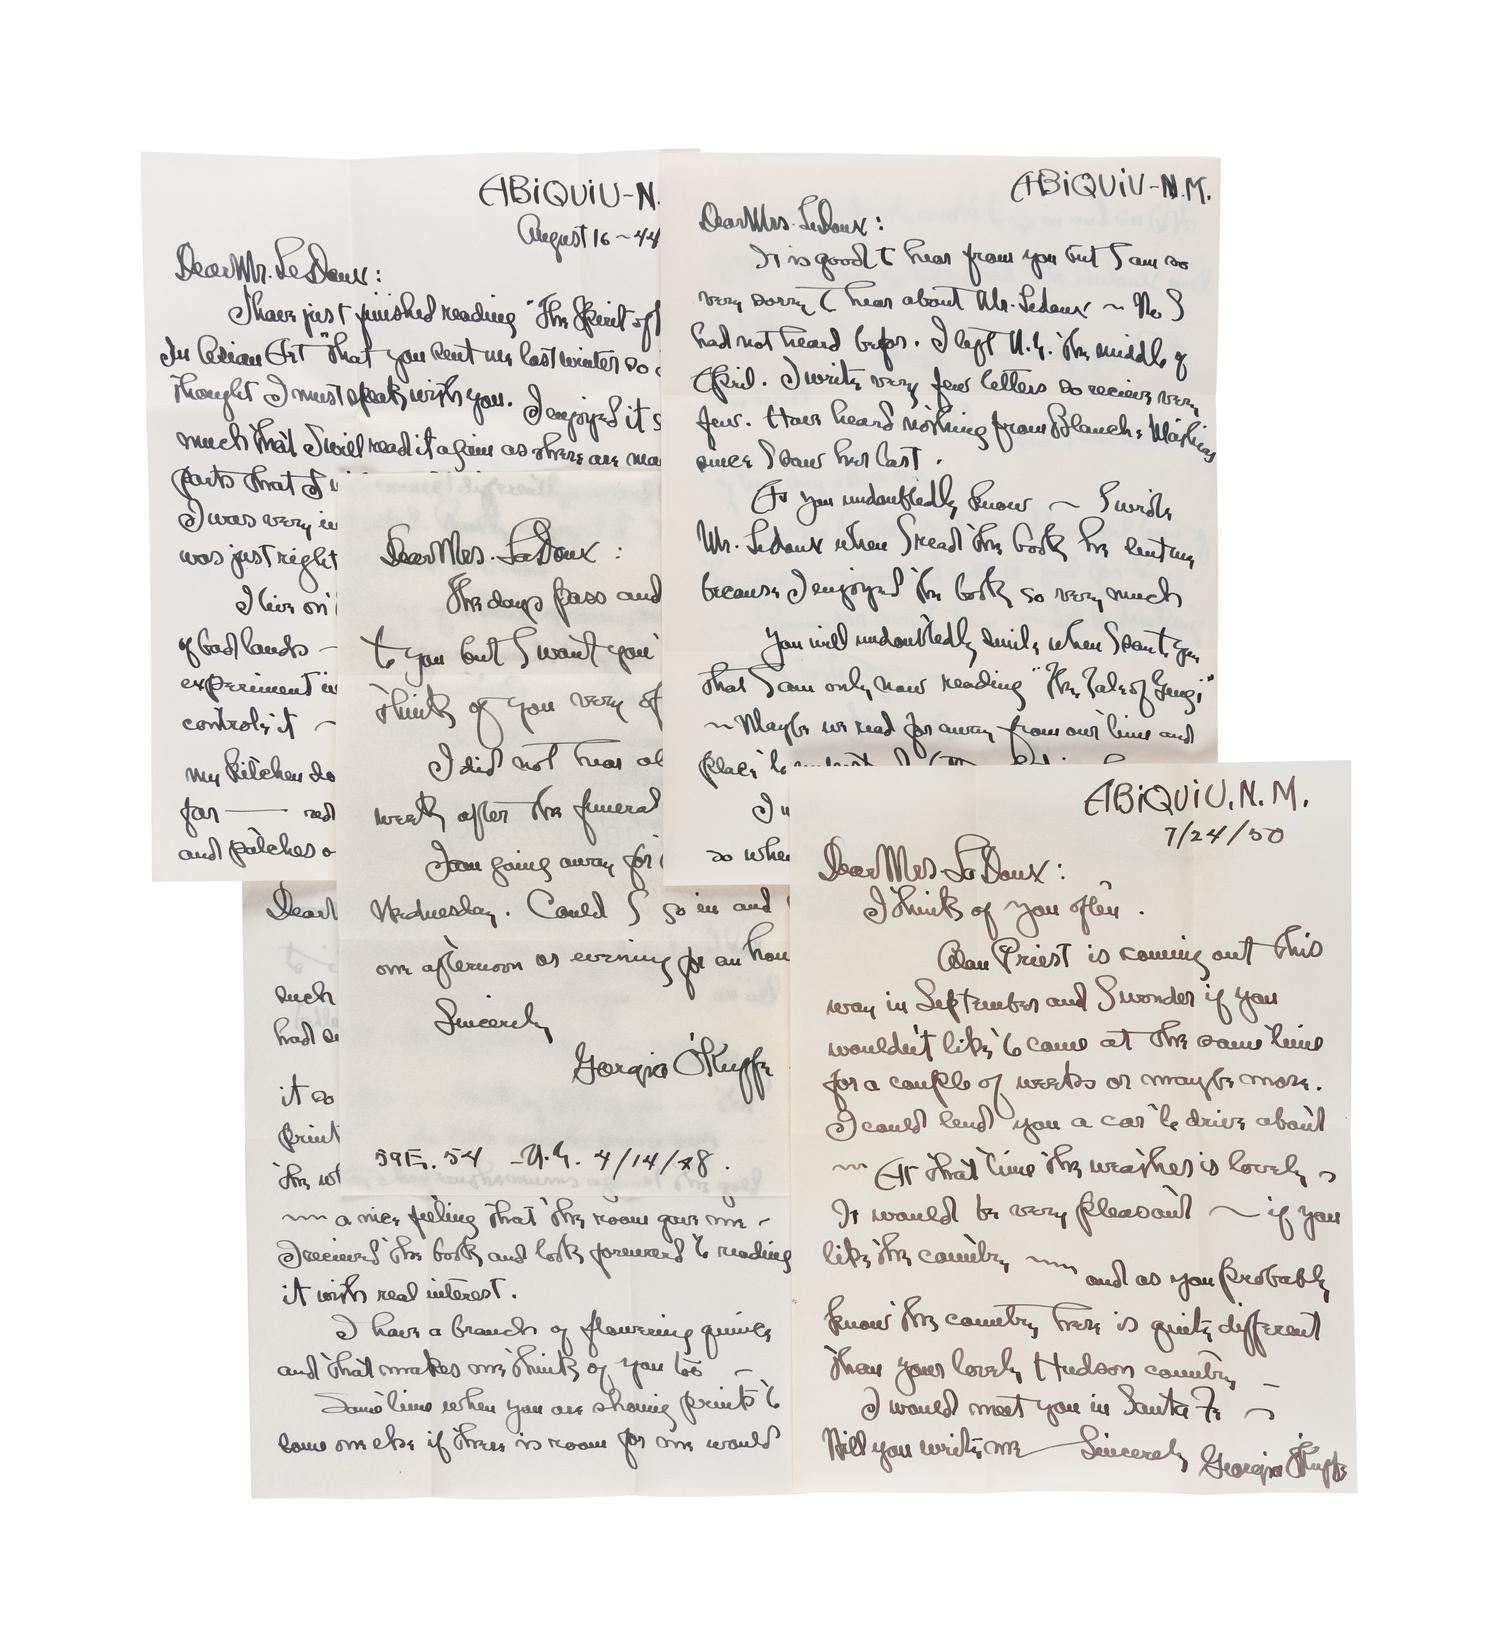 ABiQUiU-N.
August 16 ~ 44
Dear Mr. Le Doux :
I have just finished reading "The Spirit of
In Asian Art" that you sent me last winter so
thought I must speak with you. I enjoyed it s
much that I will read it again as there are ma
parts that I
I was very in
was just right
I live on
of bad lands —
experiment in
controls it —
my kitchen do
far — red
and patches o
ABiQUiU-N.M.
Dear Mrs. LeDoux :
It is good to hear from you but I am so
very sorry to hear about Mr. Ledoux ~ No I
had not heard before. I left N.Y. the middle of
April. I write very few letters so recieve very
few. Have heard nothing from Blanche Mathias
since I saw her last.
As you undoubtedly know ~ I wrote
Mr. Ledoux when I read the book he sent me
because I enjoyed the book so very much
You will undoubtedly smile when I say to you
that I am only now reading "The Tale of Gengi"
~ Maybe we read far away from our time and
place to
I w
so when
Dear Mrs. Le Doux :
The days pass and
to you but I want you
think of you very of
I did not hear ab
week after the funeral
I am going away for
Wednesday. Could I go in and
one afternoon or evening for an hou
Sincerely
Georgia O'Keeffe
59 E. 54 - N.Y. 4/14/48.
Dear M
such
had se
it so
print
the wh
~~ a nice feeling that the room gave me -
I recieved the book and look foreward to reading
it with real interest.
I have a branch of flowering quince
and that makes me think of you too -
Sometime when you are showing prints to
some one else if there is room for me would
ABiQUiU, N.M.
7/24/50
Dear Mrs. Le Doux :
I think of you often.
Alan Priest is coming out this
way in September and I wonder if you
wouldn't like to come at the same time
for a couple of weeks or maybe more.
I could lend you a car to drive about
~~ At that time the weather is lovely ~
It would be very pleasant ~ if you
like the country ~~ and as you probably
know the country here is quite different
than your lovely Hudson country —
I would meet you in Santa Fe ~
Will you write me — Sincerely Georgia O'Keeffe